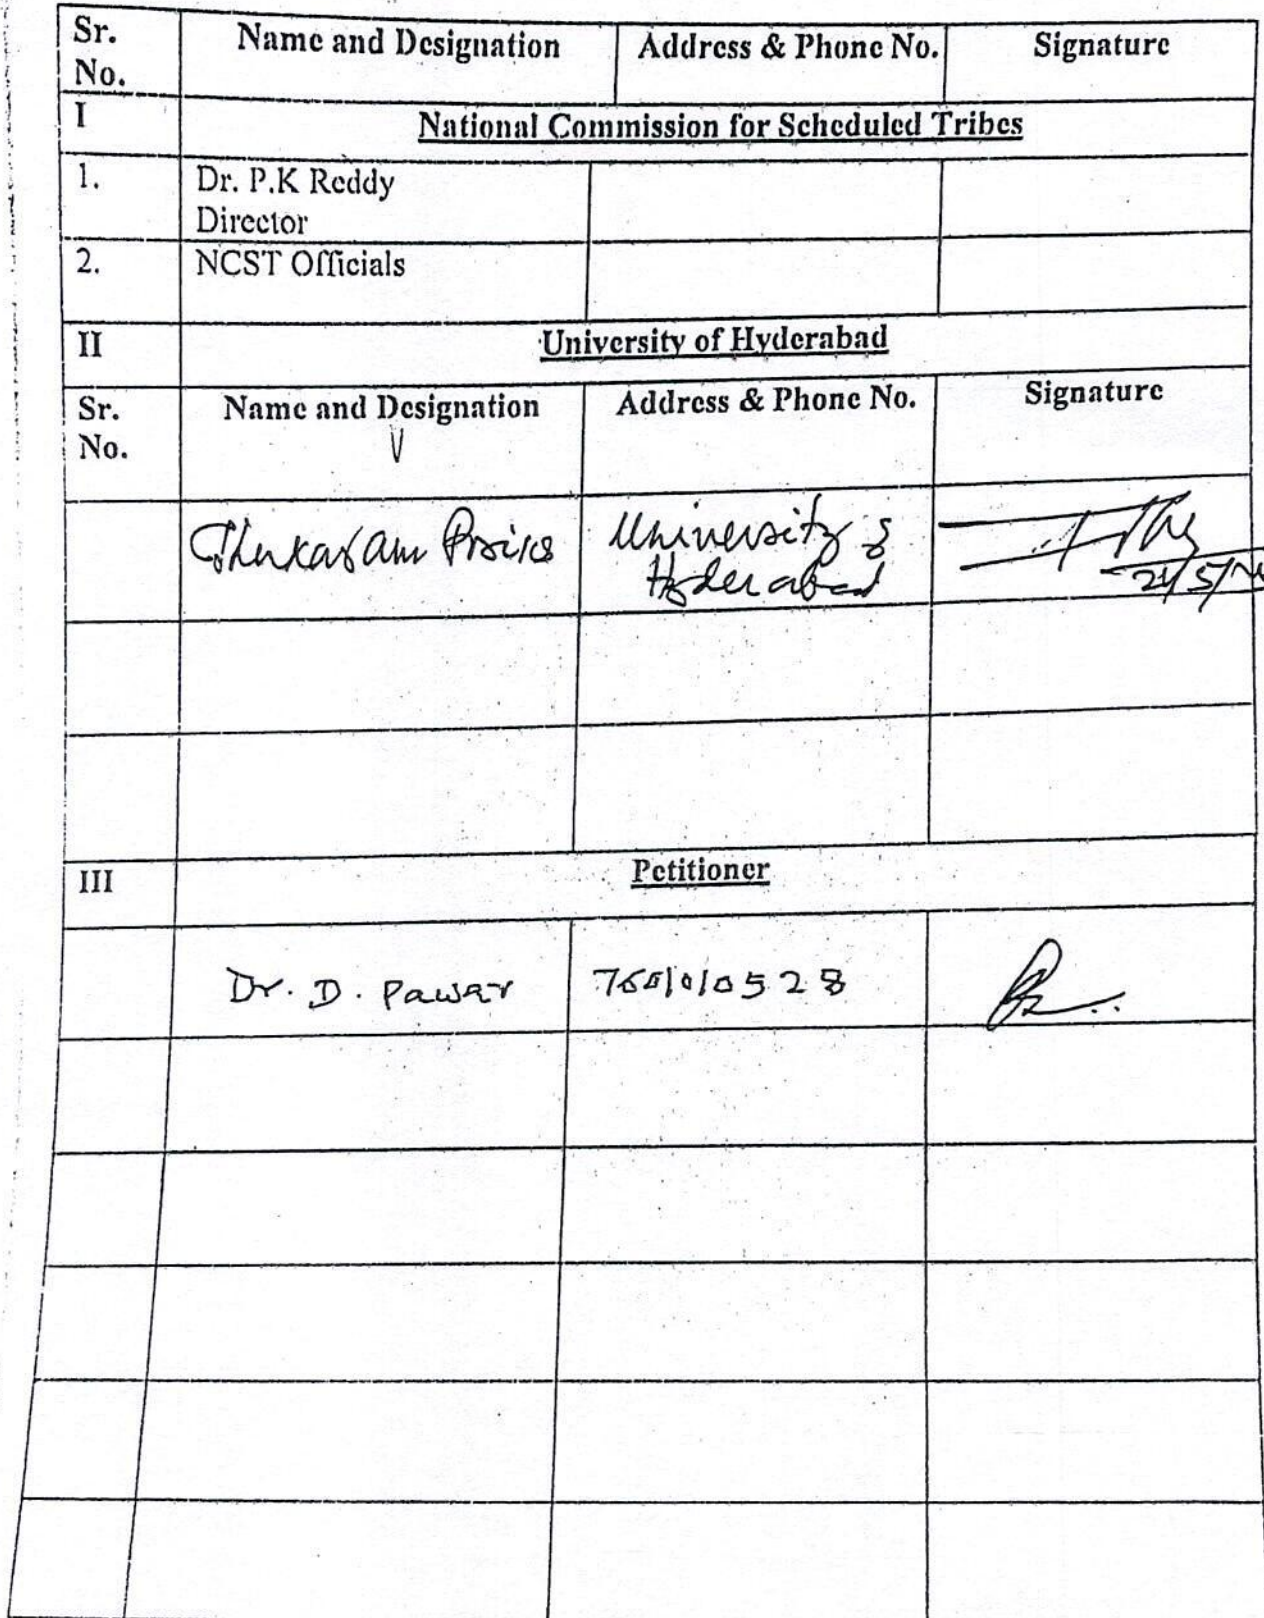 Sr. No.
Name and Designation
Address & Phone No.
Signature
I
National Commission for Scheduled Tribes
1.
Dr. P.K Reddy
Director
2.
NCST Officials
II
University of Hyderabad
Sr. No.
Name and Designation
Address & Phone No.
Signature
University of
Hyderabad
III
Petitioner
Dr. D. Pawar